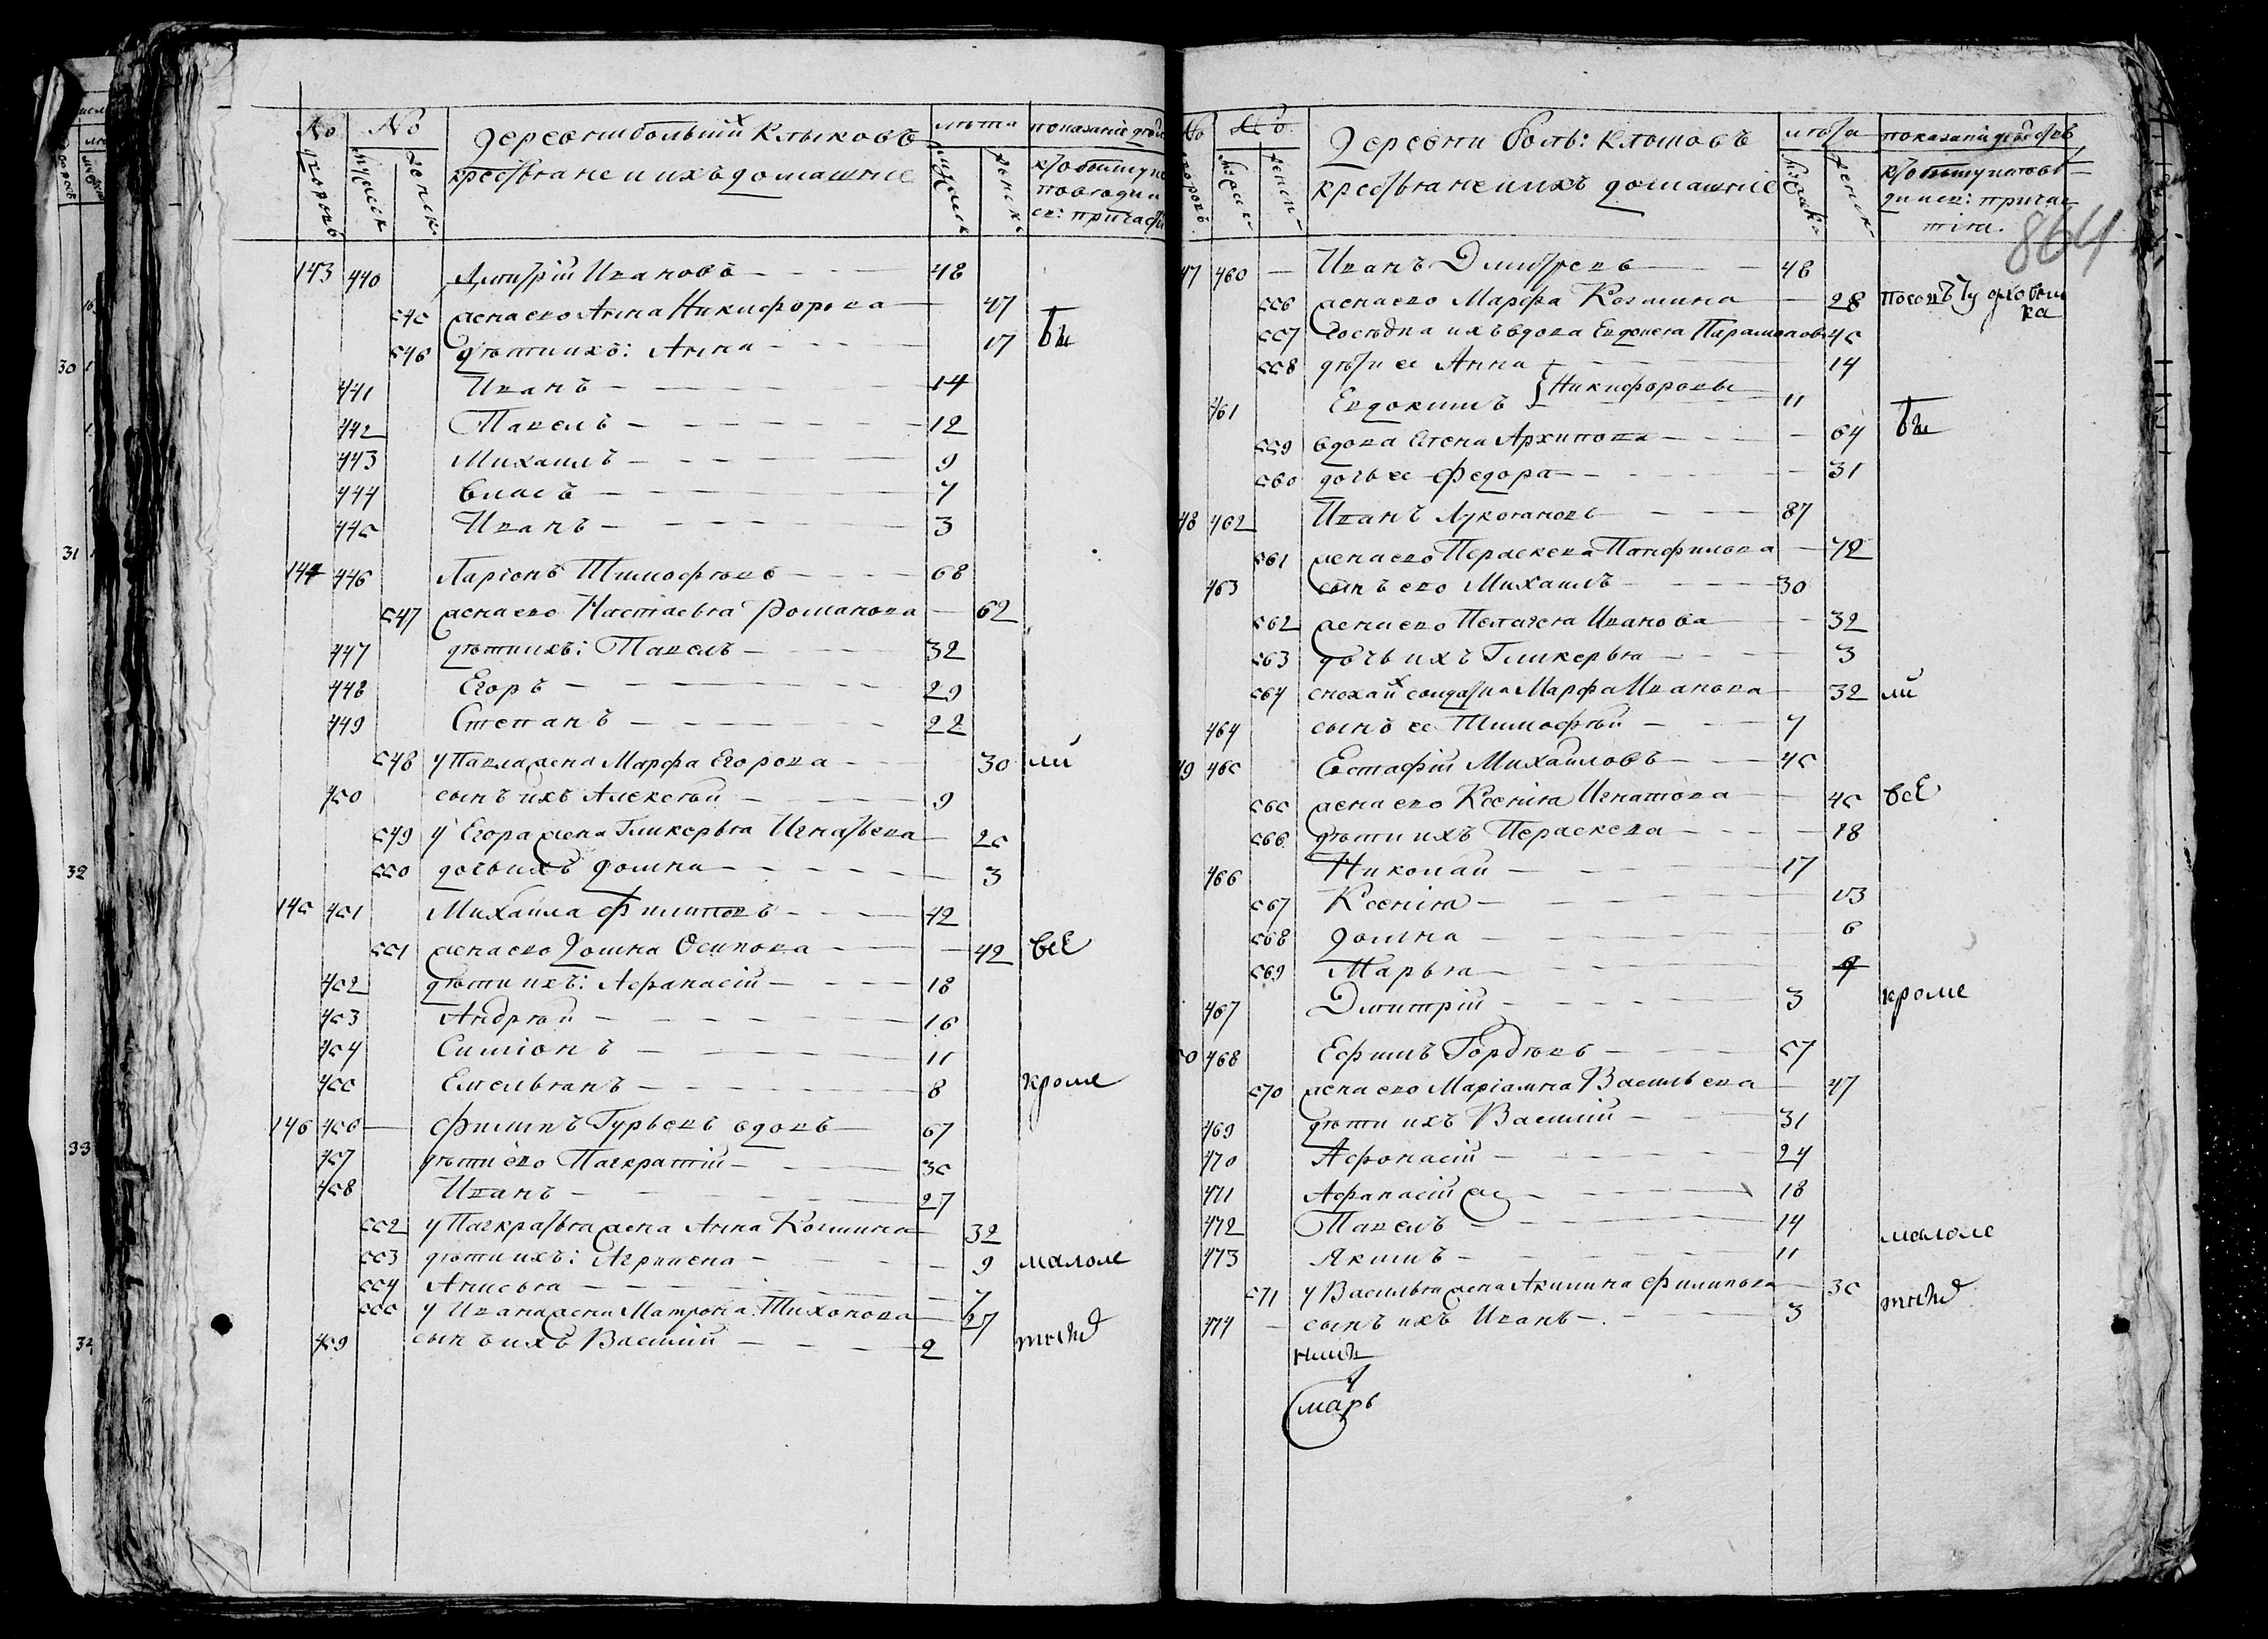 № дворовъ № мужеск женск деревни большихъ Клыковъ лѣта мужеск женск показаніе дѣйс
крестьяне и ихъ домашніе кто бытцу
повсягодн
св: причаст
143 440 Дмитрій Ивановъ 48
545 жена ево Анна Никифорова 47
546 дѣти ихъ: Анна 17 бы
441 Иванъ 14
442 Павелъ 12
443 Михаилъ 9
444 Власъ 7
445 Иванъ 3
144 446 Ларіонъ Тимофѣевъ 68
547 жена ево Настасья Романова 62
447 дѣти ихъ: Павелъ 32
448 Егоръ 29
449 Степанъ 22
548 у Павла жена Марфа Егорова 30 ли
450 сынъ ихъ Алексѣй 9
549 у Егора жена Гликерья Игнатьева 25
550 дочь ихъ Домна 3
145 451 Михаила Филиповъ 42
551 жена ево Домна Осипова 42 всѣ
452 дѣти ихъ: Афанасій 18
453 Андрѣй 16
454 Симіонъ 11
455 Емельянъ 8 кроме
146 456 Филипъ Гурьевъ вдовъ 67
457 дѣти ево Панкратій 35
458 Иванъ 27
552 у Панкратья жена Анна Козмина 32
553 дѣти ихъ: Агрипена 9 малоле
554 Анисья 7
555 у Ивана жена Матрона Тихонова 27 тныхъ
459 сынъ ихъ Василій 2
№ дворовъ № мужеск женск деревни боль: Клыковъ лѣта мужеск женск показаніе дѣйств
крестьяне и ихъ домашніе
динсв: прича
тія.
864
47 460 Иванъ Дмитревъ 46
556 жена ево Марфа Козмина 28
557 сосѣдка ихъ вдова Евдокея Парамонова 45
558 дѣти ее Анна 14
461 Евдокимъ } Никифоровы 11
559 вдова Елена Архипова 64 бы
560 дочь ее Федора 31
48 462 Иванъ Лукояновъ 87
561 жена ево Пераскева Панфилова 72
463 сынъ ево Михаилъ 30
562 жена ево Пелагея Иванова 32
563 дочь ихъ Гликерья 3
564 сноха ихъ солдатка Марфа Иванова 32 ли
464 сынъ ее Тимофѣй 7
49 465 Естафій Михайловъ 45
565 жена ево Ксенія Игнатова 45 всѣ
566 дѣти ихъ Пераскева 18
466 Николай 17
567 Ксенія 13
568 Домна 6
569 Марья 4
467 Дмитрій 3 кроме
50 468 Ефимъ Гордѣевъ 57
570 жена ево Маріамна Васильева 47
469 дѣти ихъ Василій 31
470 Афонасій 24
471 Афанасій же 18
472 Павелъ 14 малоле
473 Якимъ 11
571 у Василья жена Акилина Филипова 35 тныхъ
474 сынъ ихъ Иванъ 3